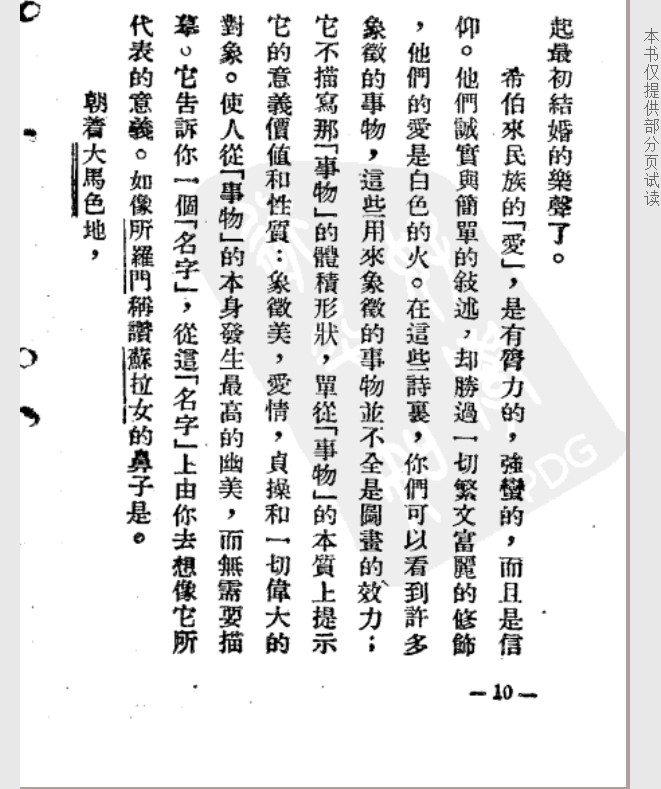 起最初結婚的樂聲了。
希伯來民族的「愛」，是有膂力的，強蠻的，而且是信
仰。他們誠實與簡單的敍述，却勝過一切繁文富麗的修飾
，他們的愛是白色的火。在這些詩裏，你們可以看到許多
象徵的事物，這些用來象徵的事物並不全是圖畫的效力；
它不描寫那「事物」的體積形狀，單從「事物」的本質上提示
它的意義價值和性質：象徵美，愛情，貞操和一切偉大的
對象。使人從「事物」的本身發生最高的幽美，而無需要描
摹。它告訴你一個「名字」，從這「名字」上由你去想像它所
代表的意義。如像所羅門稱讚蘇拉女的鼻子是。
朝着大馬色地，
—10—
本书仅提供部分页试读
PDG